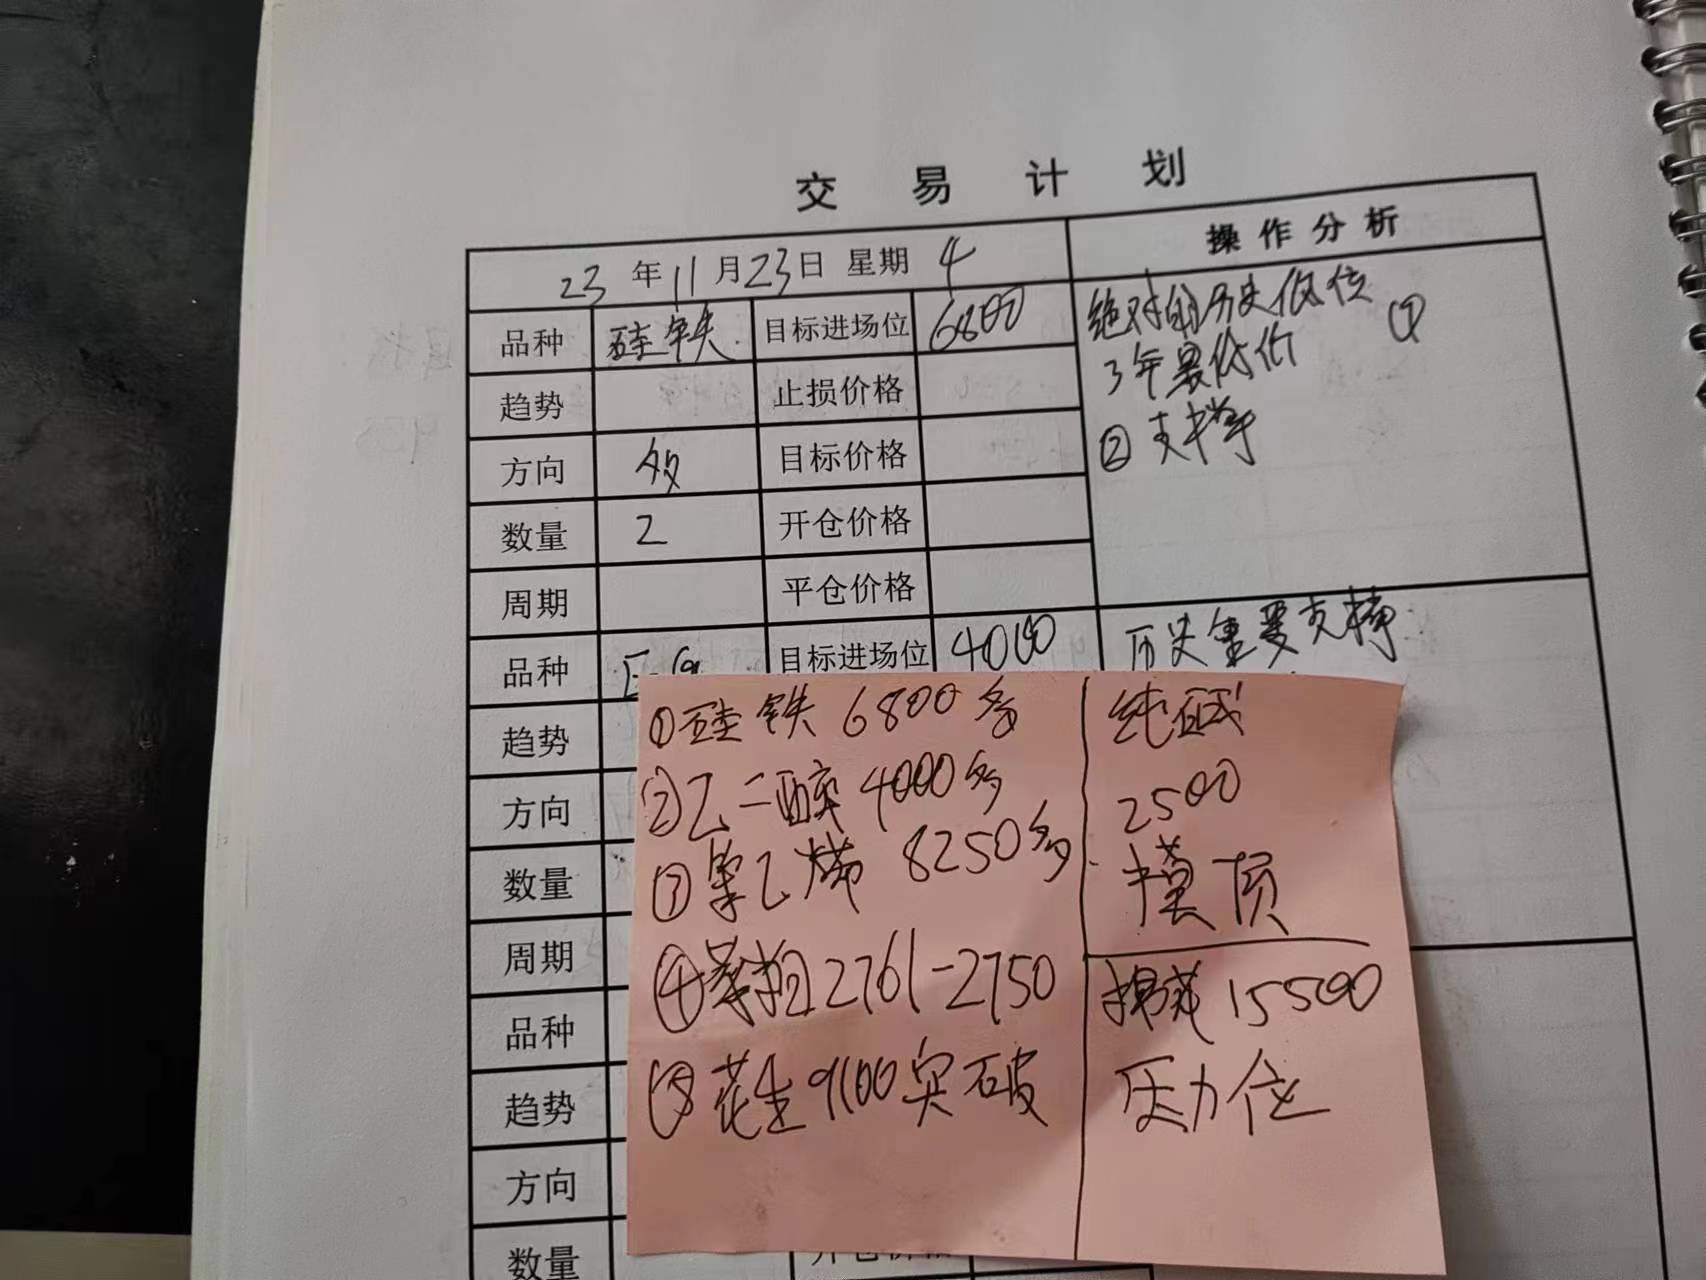 交易计划
23年11月23日 星期4
操作分析
品种 硅铁 目标进场位 6800
绝对的历史低位 ①
3年最低价
② 支撑
趋势 止损价格
方向 多 目标价格
数量 2 开仓价格
周期 平仓价格
品种 目标进场位 4000
历史重要支撑
趋势
方向
数量
周期
品种
趋势
方向
数量
①硅铁 6800多
②乙二醇 4000多
③苯乙烯 8250多
④菜粕2761-2750
⑤花生9100突破
纯碱
2500
摸顶
棉花15500
压力位